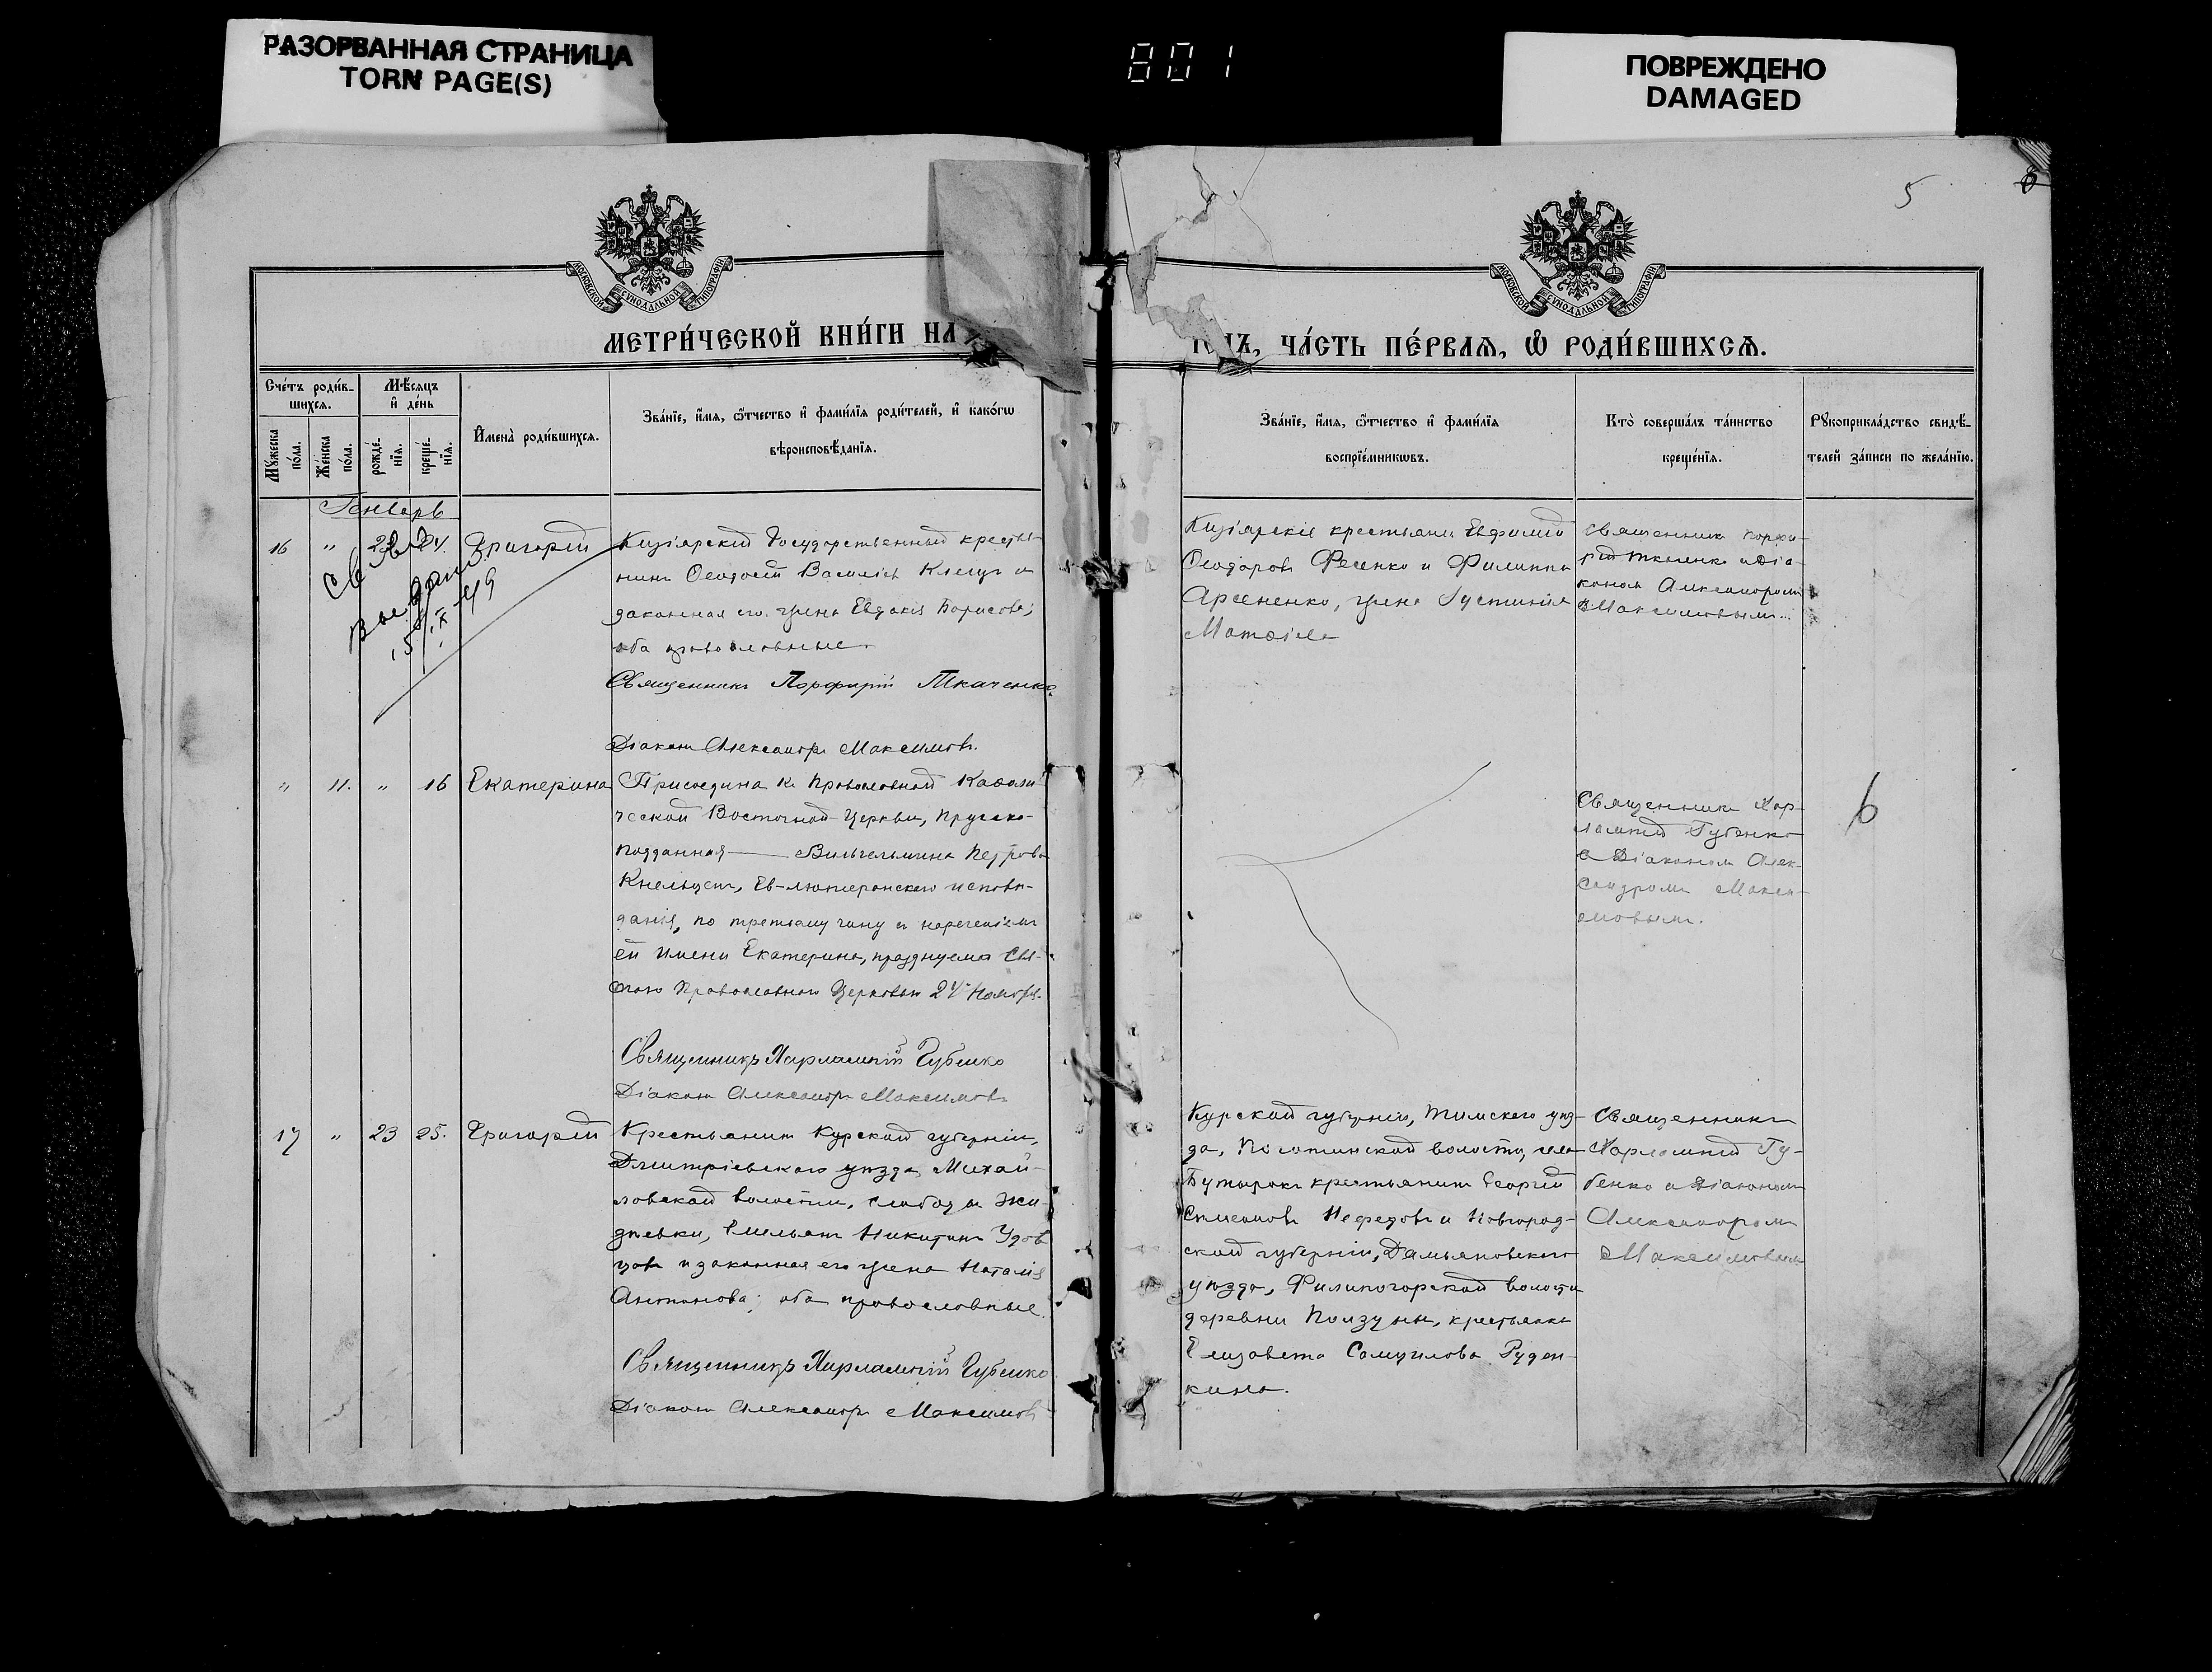 РАЗОРВАННАЯ СТРАНИЦА
TORN PAGE(S)
801
ПОВРЕЖДЕНО
DAMAGED
5
МОСКОВСКОЙ СѴНОДАЛЬНОЙ ТИПОГРАФІИ
МОСКОВСКОЙ СѴНОДАЛЬНОЙ ТИПОГРАФІИ
МЕТРИ́ЧЕСКОЙ КНИ́ГИ НА
ЧА́СТЬ ПЕ́РВАЯ, Ѡ РОДИ́ВШИХСЯ.
Сче́тъ роди́в-
шихся.
Мѣ́сяцъ
и҆ де́нь
Му́жеска
по́ла.
Же́нска
по́ла.
рожде́-
нїя.
креще́-
нїя.
И҆мена̀ роди́вшихся.
Зва́нїе, и҆́мя, ѻ҆́тчество и҆ фами́лїя роди́телей, и҆ како́гѡ
вѣроисповѣ́данїя.
Зва́нїе, и҆́мя, ѻ҆́тчество и҆ фами́лїя
воспрїе́мникѡвъ.
Кто̀ соверша́лъ та́инство
креще́нїя.
Рꙋкоприкла́дство свидѣ́-
телей за́писи по жела́нїю.
Генварь
16 " 24. Григорій
Св
Выдано
15/IX 49
Кизіярскій Государственный крестья-
нинъ Ѳеодосій Василіев и
законная его жена Евдокія Борисова;
оба православные.
Священникъ Порфирій Ткаченко
Діаконъ Александръ Максимовъ.
Кизіярскіе крестьяне Евфимій
Ѳеодоровъ Фесенко и Филиппа
Арсененко, жена Іустинія
Матѳіева
Священникъ Порфи-
рій Ткаченко и Діа-
кономъ Александромъ
Максимовымъ.
" 11. " 16 Екатерина
Присоединена къ Православной Каѳоли-
ческой Восточной Церкви, Прусско-
подданная — Вильгельмина Петрова
Ев-лютеранскаго исповѣ-
данія, по третьему чину съ нареченіемъ
ей имени Екатерина, празднуемая Свя-
тою Православною Церковью 24 Ноября.
Священникъ Харлампій Губенко
Діаконъ Александръ Максимовъ
Священникъ Хар-
лампій Губенко
съ Діакономъ Алек-
сандромъ Макси-
мовымъ.
6
17 " 23 25. Григорій
Крестьянинъ Курской губерніи,
Дмитріевскаго уѣзда, Михай-
ловской волости, слободы Жи-
дѣевки, Емельянъ Никитинъ Удов-
и законная его жена Наталія
Антонова; оба православные.
Священникъ Харлампій Губенко
Діаконъ Александръ Максимовъ
Курской губерніи, Тимскаго уѣз-
да, волости, села
Бутырокъ крестьянинъ Георгій
Симеоновъ Нефедовъ и Новгород-
ской губерніи, Демьяновскаго
уѣзда, Филипогорской волости
деревни Ползуны, крестьянка
Елизавета Самуилова Руден-
кина.
Священникъ
Харлампій Гу-
бенко съ Діакономъ
Александромъ
Максимовымъ